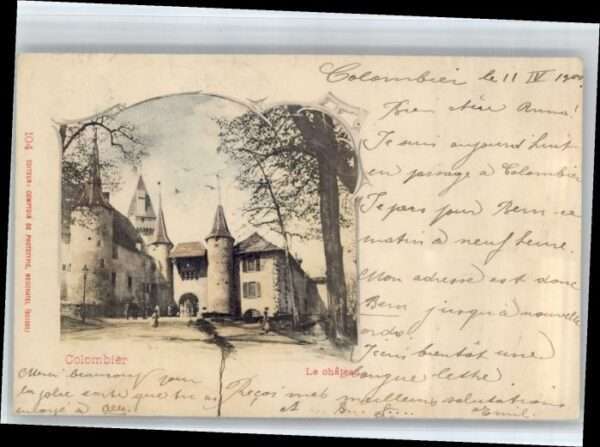 Colombier le 11 IV 1900
Bien chère Anna!
Je suis aujourd'hui
en passage à Colombier
Je pars pour Bern ce
matin à neuf heure.
Mon adresse est donc
Bern jusqu'à nouvelle
ordre
J'écris bientôt une
longue lettre.
Reçois mes meilleurs salutations
et
Emil.
Merci beaucoup pour
la jolie carte que tu as
envoyé à
104 EDITEUR: COMPTOIR DE PHOTOTYPIE, NEUCHATEL (SUISSE)
Colombier
Le château